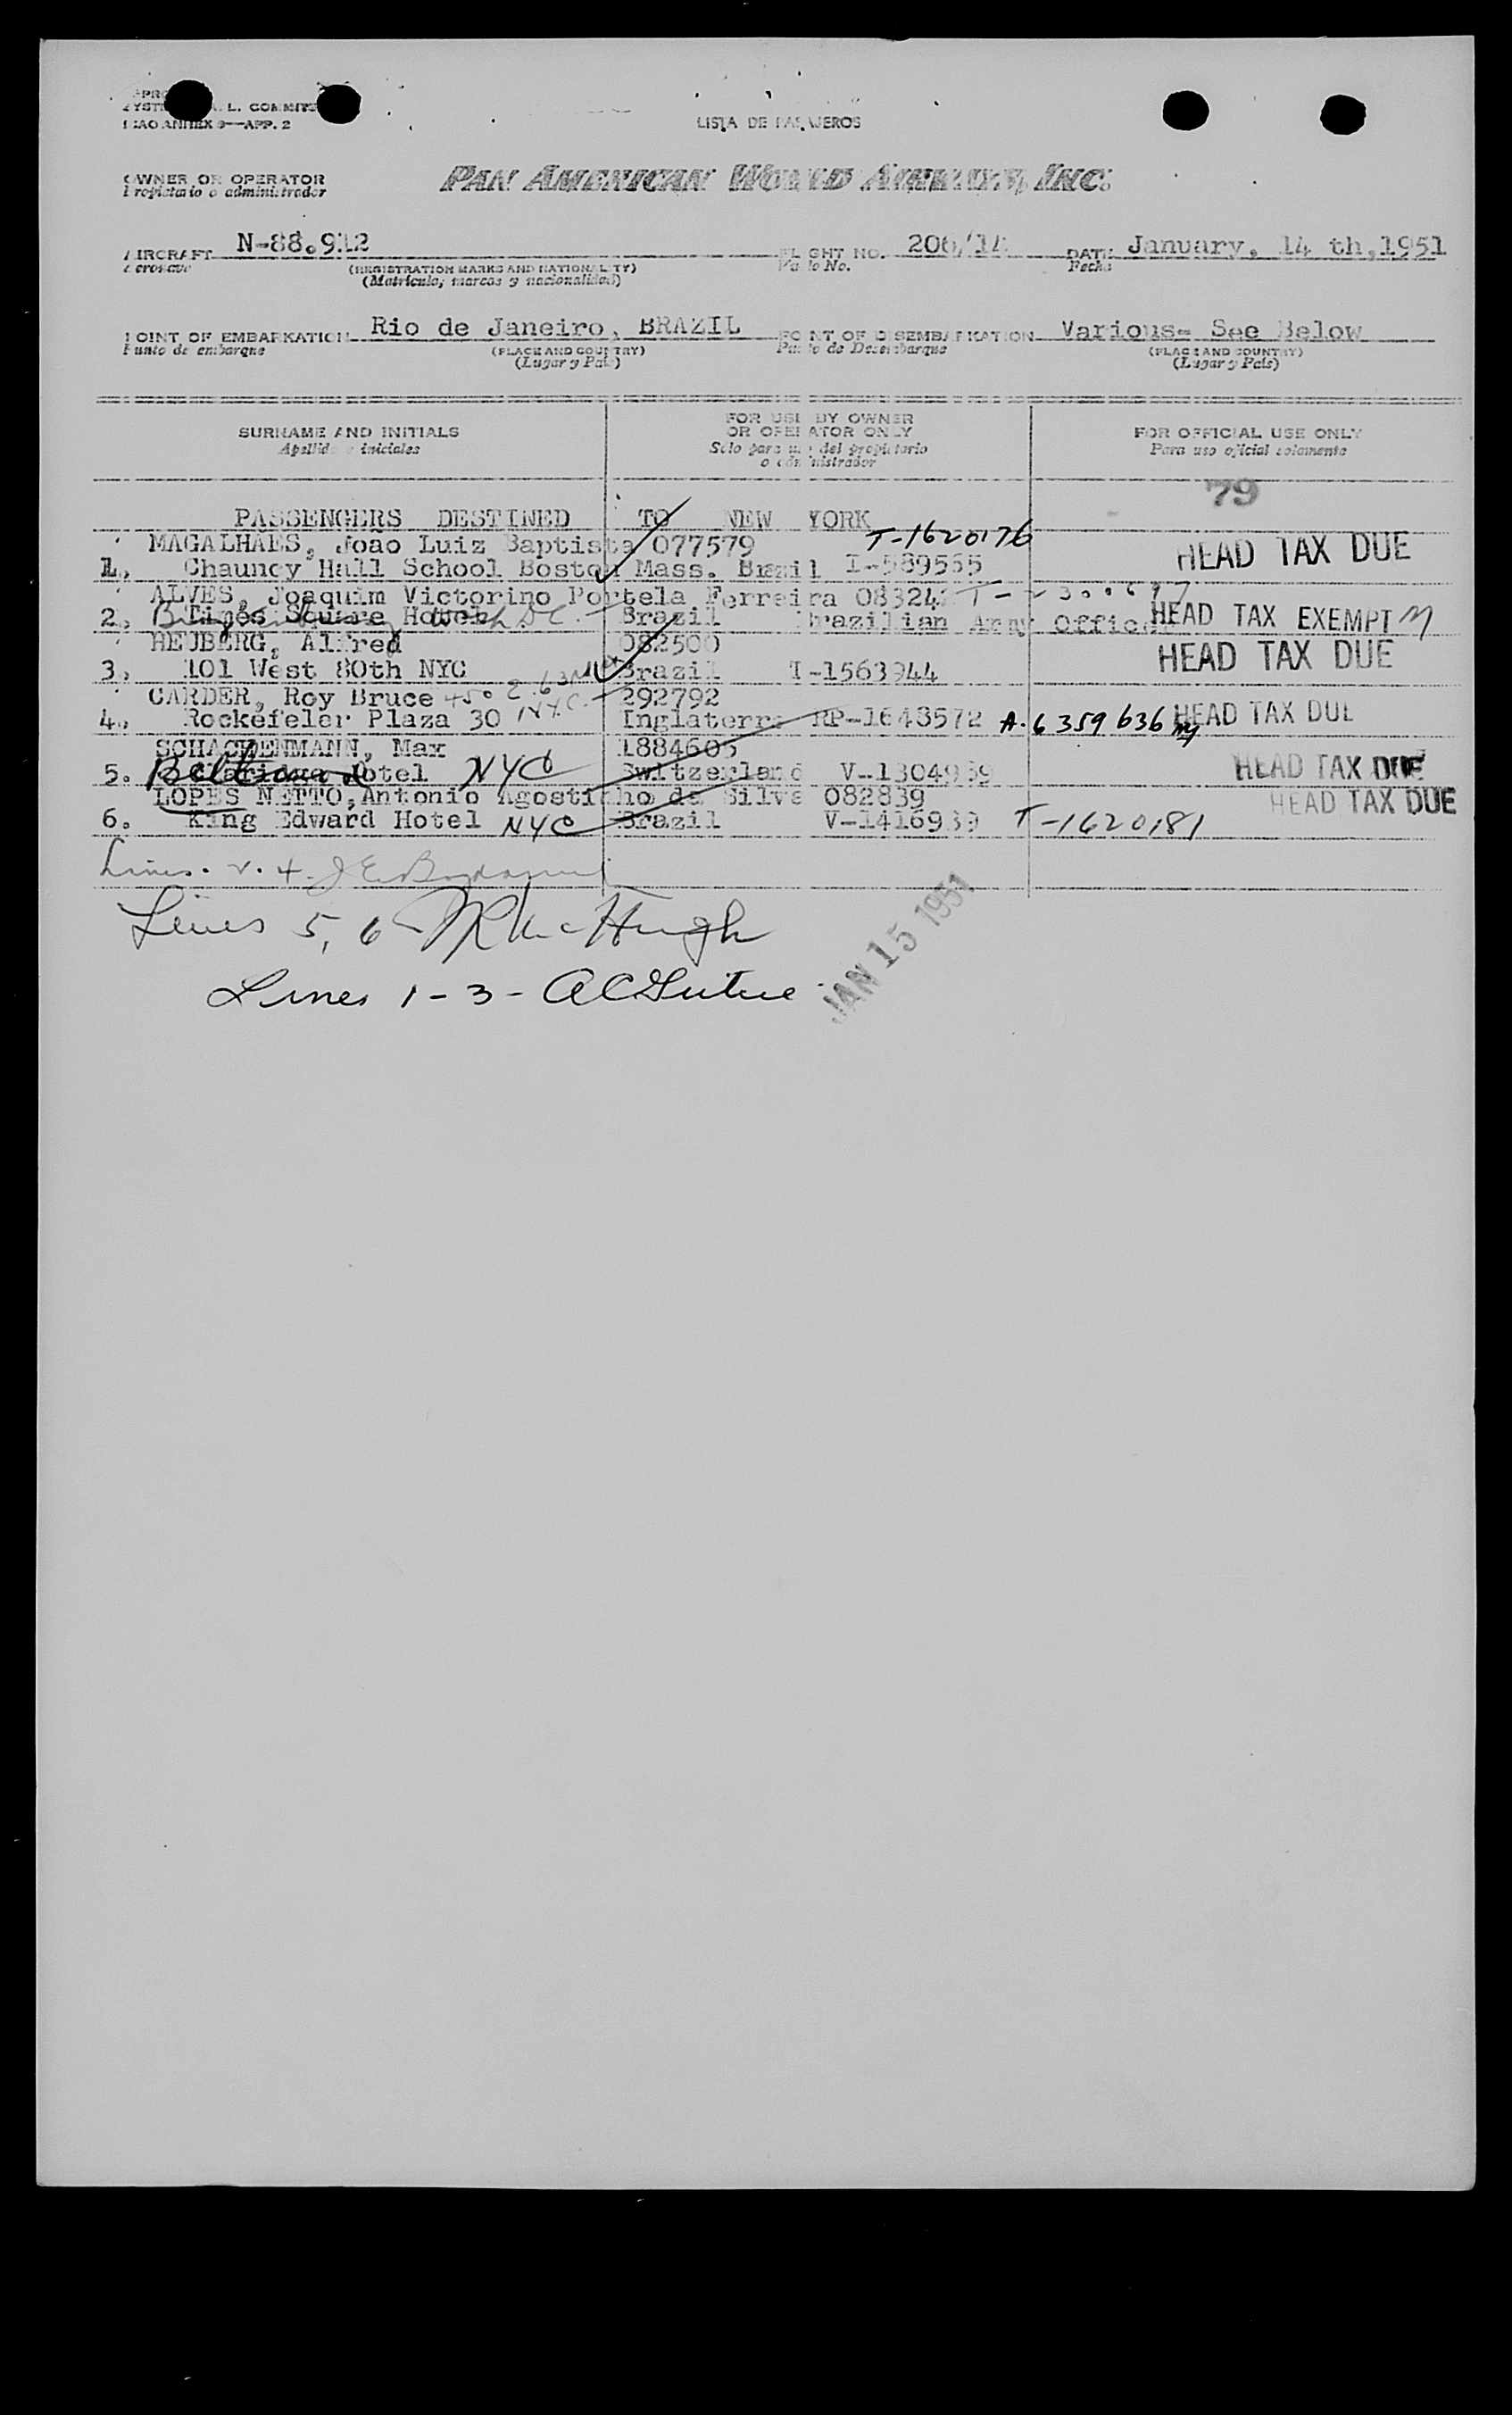 L. COMMITT
ICAO ANNEX 9—APP. 2
LISTA DE PASAJEROS
OWNER OR OPERATOR
Propietario o administrador
PAN AMERICAN WORLD AIRWAYS, INC.
AIRCRAFT N-88.912
Aeronave
(REGISTRATION MARKS AND NATIONALITY)
(Matricula, marcas y nacionalidad)
FLIGHT NO. 206/14
Vuelo No.
DATE January, 14 th, 1951
Fecha
POINT OF EMBARKATION Rio de Janeiro, BRAZIL
Punto de embarque
(PLACE AND COUNTRY)
(Lugar y Pais)
POINT OF DISEMBARKATION Various- See Below
Punto de Desembarque
(PLACE AND COUNTRY)
(Lugar y Pais)
SURNAME AND INITIALS
Apellido e iniciales
FOR USE BY OWNER
OR OPERATOR ONLY
Solo para uso del propietario
o administrador
FOR OFFICIAL USE ONLY
Para uso oficial solamente
79
PASSENGERS DESTINED TO NEW YORK
MAGALHAES, Joao Luiz Baptista 077579 T-1620176
1. Chauncy Hall School Boston Mass. Brazil I-589565 HEAD TAX DUE
ALVES, Joaquim Victorino Portela Ferreira 083242
2. Times Square Hotel Wash D.C. Brazil Brazilian Army Officer HEAD TAX EXEMPT
HEUBERG, Alfred 082500
3. 101 West 80th NYC Brazil I-1563944 HEAD TAX DUE
CARDER, Roy Bruce 450 E. 63 NYC. 292792
4. Rockefeler Plaza 30 Inglaterra RP-1648572 A-6359636 HEAD TAX DUE
SCHACHENMANN, Max 1884605
5. Hotel NYC Switzerland V-1304959 HEAD TAX DUE
LOPES NETTO, Antonio Agostinho da Silva 082839 HEAD TAX DUE
6. King Edward Hotel NYC Brazil V-1416939 T-1620181
Lines. 2. 4.
Lines 5, 6 McHugh
Lines 1 - 3 -
JAN 15 1951